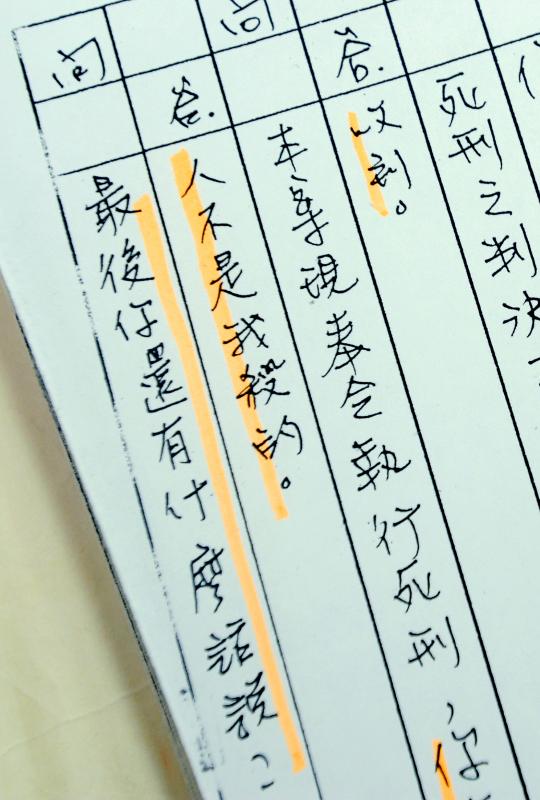 死刑之判決
答.收到。
問本案現奉令執行死刑，你
答.人不是我殺的。
問最後你還有什麼話說？